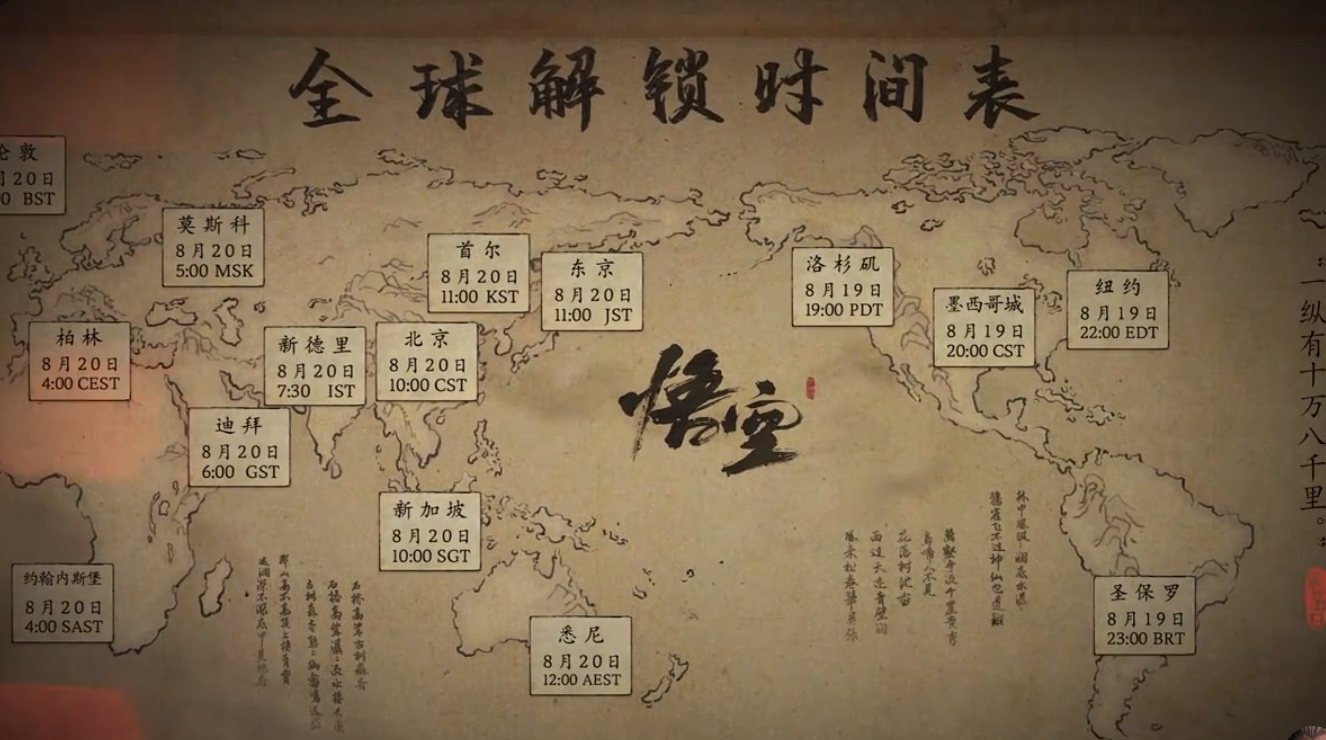 全球解锁时间表
敦
月20日
0 BST
莫斯科
8月20日
5:00 MSK
首尔
8月20日
11:00 KST
东京
8月20日
11:00 JST
洛杉矶
8月19日
19:00 PDT
墨西哥城
8月19日
20:00 CST
纽约
8月19日
22:00 EDT
柏林
8月20日
4:00 CEST
新德里
8月20日
7:30 IST
北京
8月20日
10:00 CST
迪拜
8月20日
6:00 GST
悟空
新加坡
8月20日
10:00 SGT
约翰内斯堡
8月20日
4:00 SAST
悉尼
8月20日
12:00 AEST
圣保罗
8月19日
23:00 BRT
一纵有十万八千里。